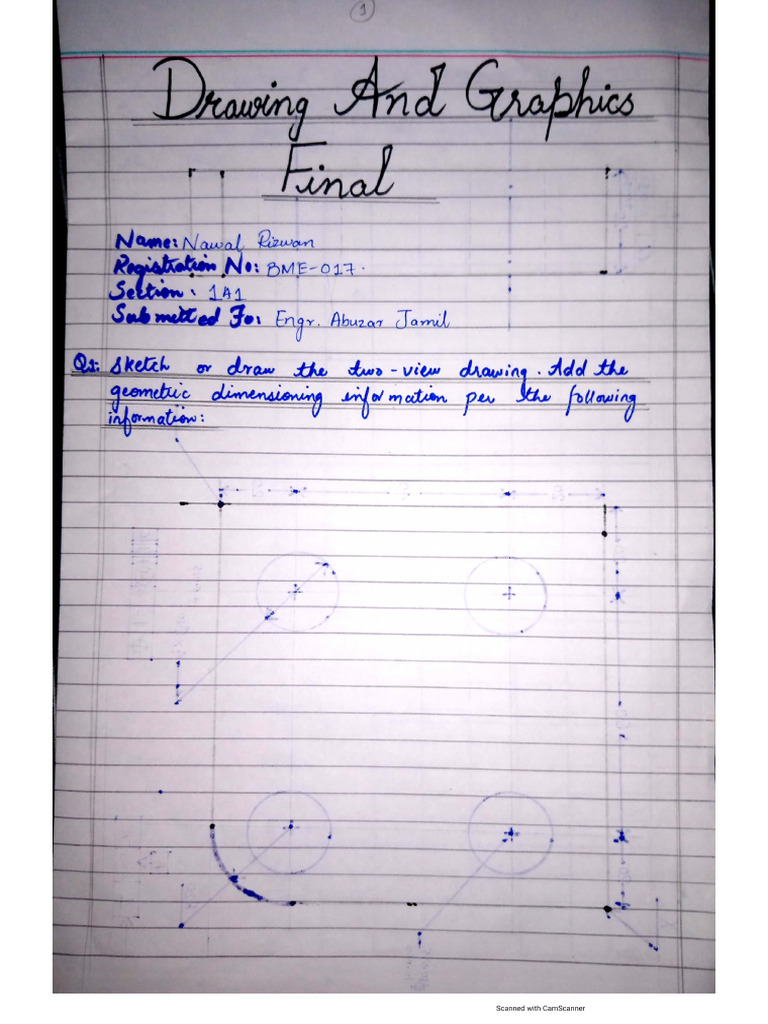 1
Drawing And Graphics
Final
Name: Nawal Rizwan
Registration No: BME-017.
Section: 1A1
Submitted To: Engr. Abuzar Jamil
Q1: Sketch or draw the two-view drawing. Add the
geometric dimensioning information per the following
information:
Scanned with CamScanner